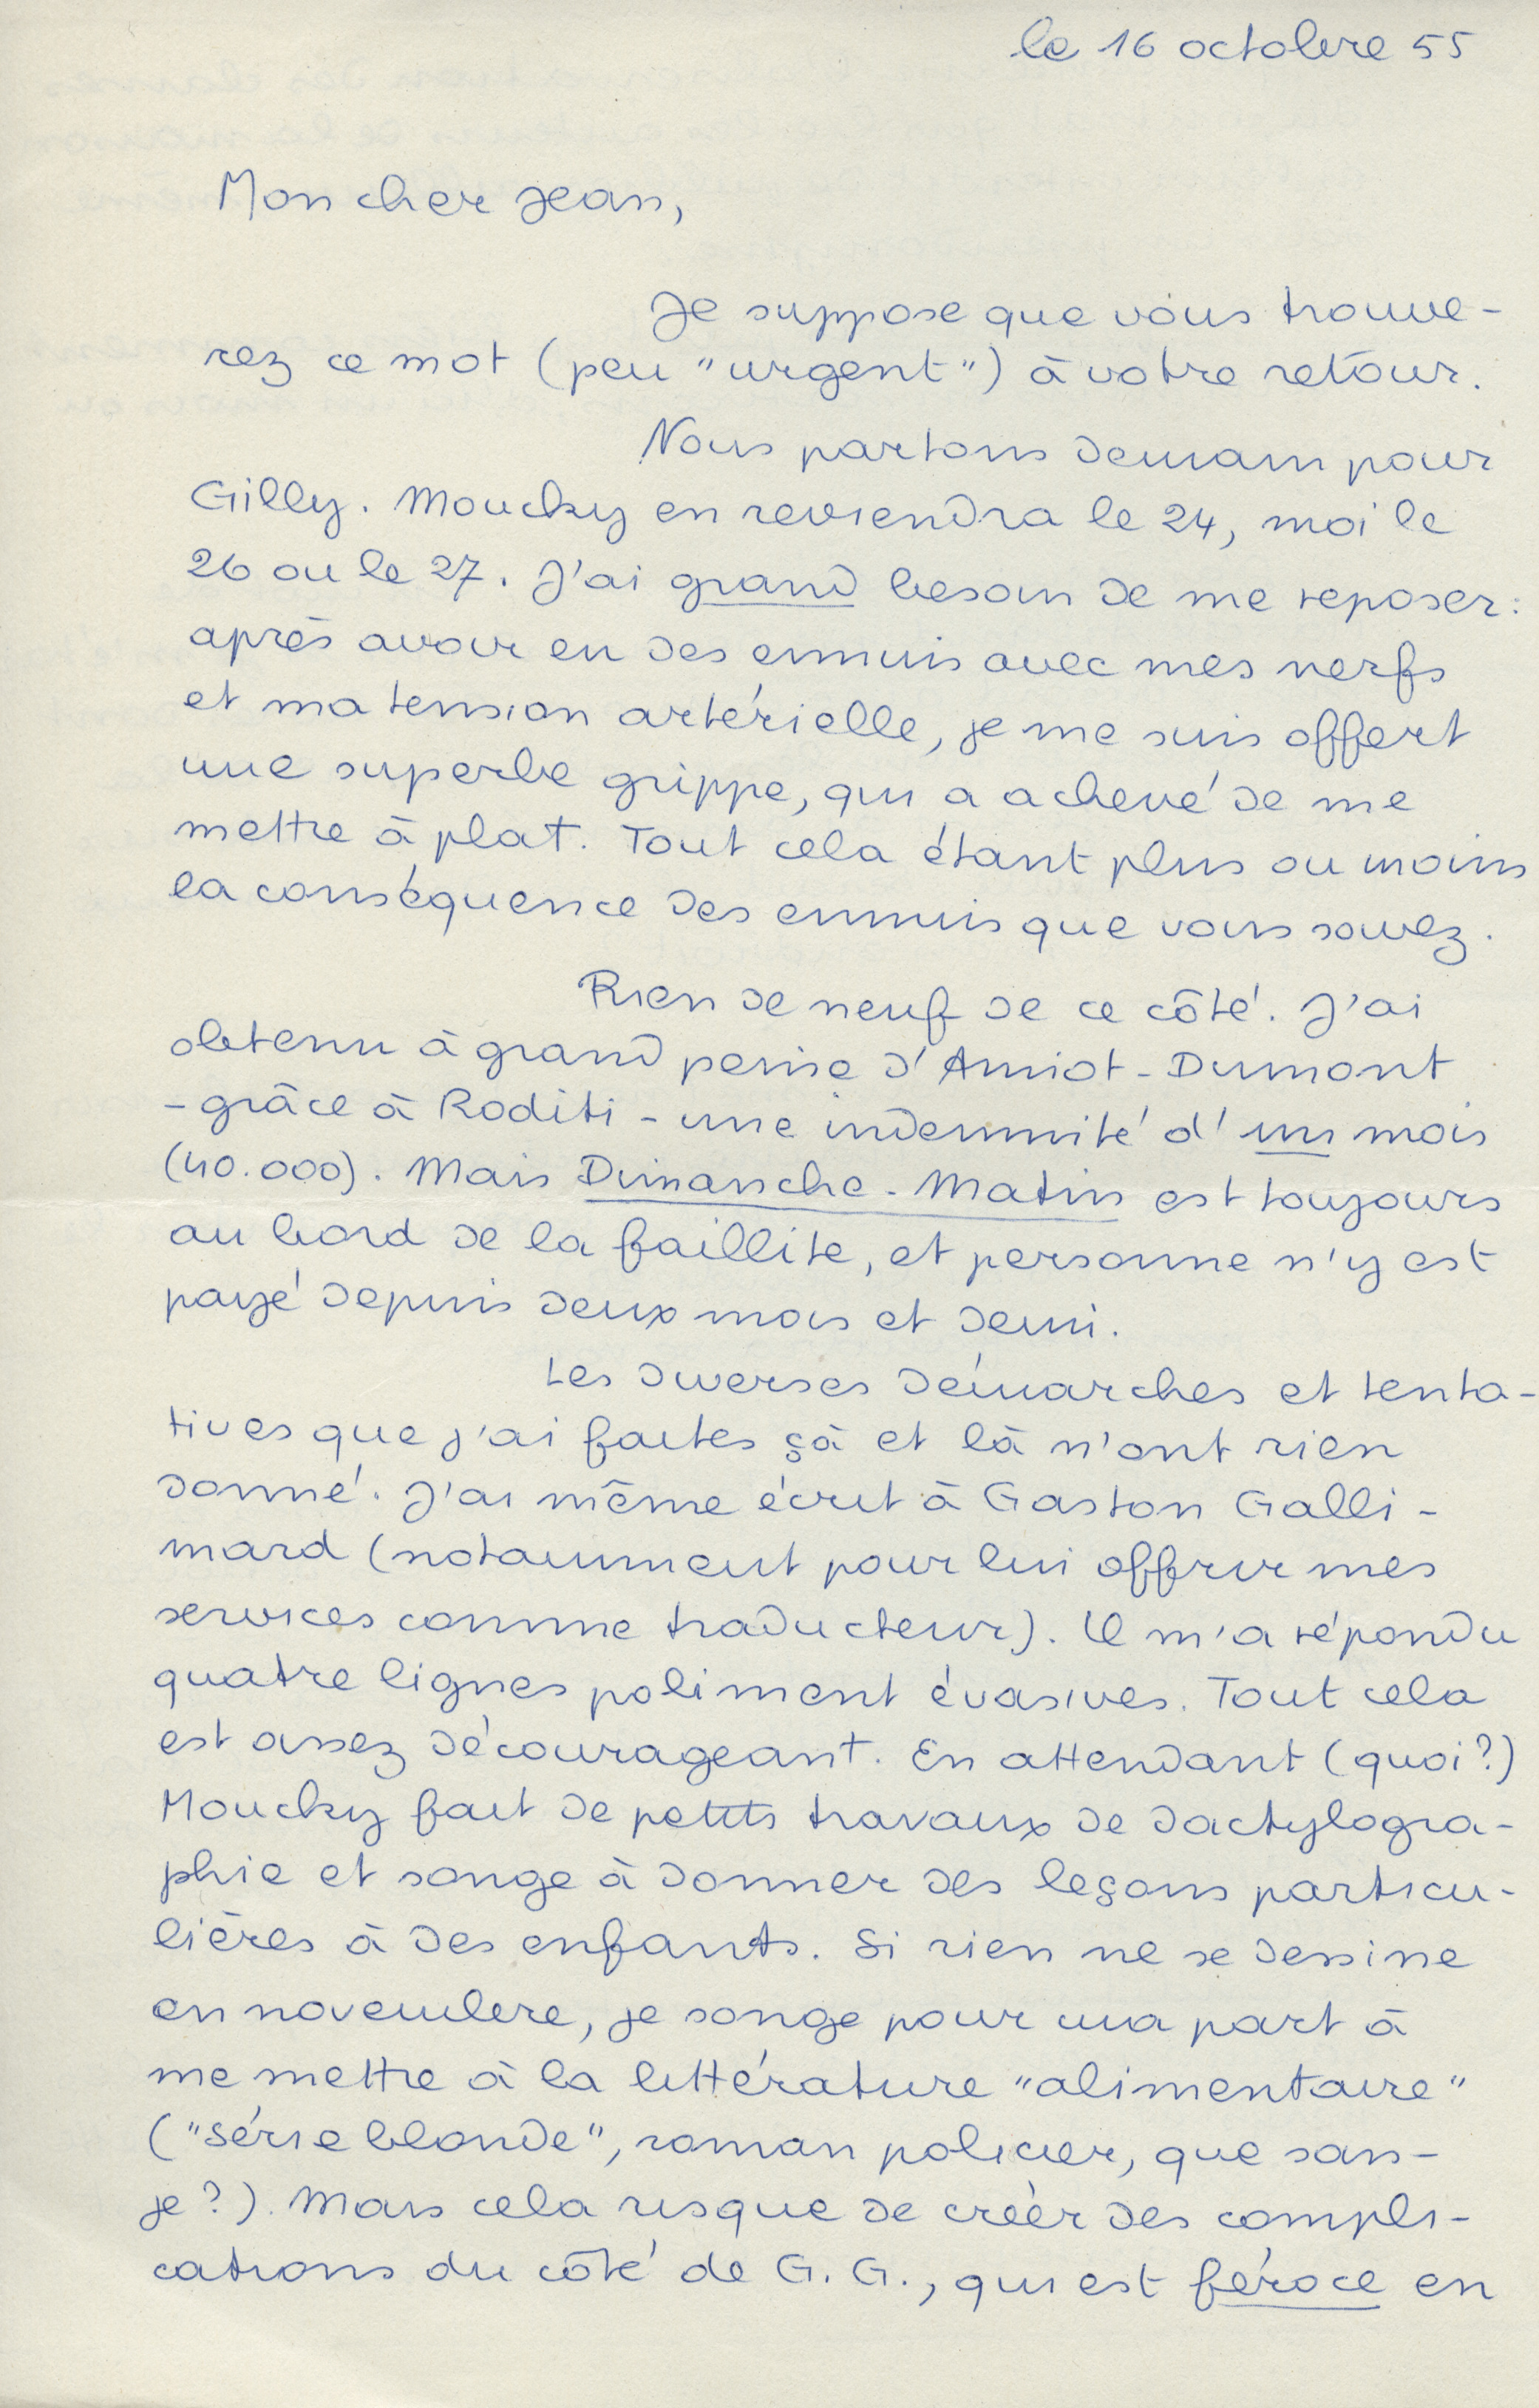 le 16 octobre 55
Mon cher Jean,
Je suppose que vous trouve-
rez ce mot (peu "urgent") à votre retour.
Nous partons demain pour
Gilly. Moucky en reviendra le 24, moi le
26 ou le 27. J'ai grand besoin de me reposer :
après avoir eu des ennuis avec mes nerfs
et ma tension artérielle, je me suis offert
une superbe grippe, qui a achevé de me
mettre à plat. Tout cela étant plus ou moins
la conséquence des ennuis que vous savez.
Rien de neuf de ce côté. J'ai
obtenu à grand peine d'Amiot-Dumont
- grâce à Roditi - une indemnité d'un mois
(40.000). Mais Dimanche-Matin est toujours
au bord de la faillite, et personne n'y est
payé depuis deux mois et demi.
Les diverses démarches et tenta-
tives que j'ai faites çà et là n'ont rien
donné. J'ai même écrit à Gaston Galli-
mard (notamment pour lui offrir mes
services comme traducteur). Il m'a répondu
quatre lignes poliment évasives. Tout cela
est assez décourageant. En attendant (quoi?)
Moucky fait de petits travaux de dactylogra-
phie et songe à donner des leçons particu-
lières à des enfants. Si rien ne se dessine
en novembre, je songe pour ma part à
me mettre à la littérature "alimentaire"
("série blonde", roman policier, que sais-
je?). Mais cela risque de créer des compli-
cations du côté de G. G., qui est féroce en